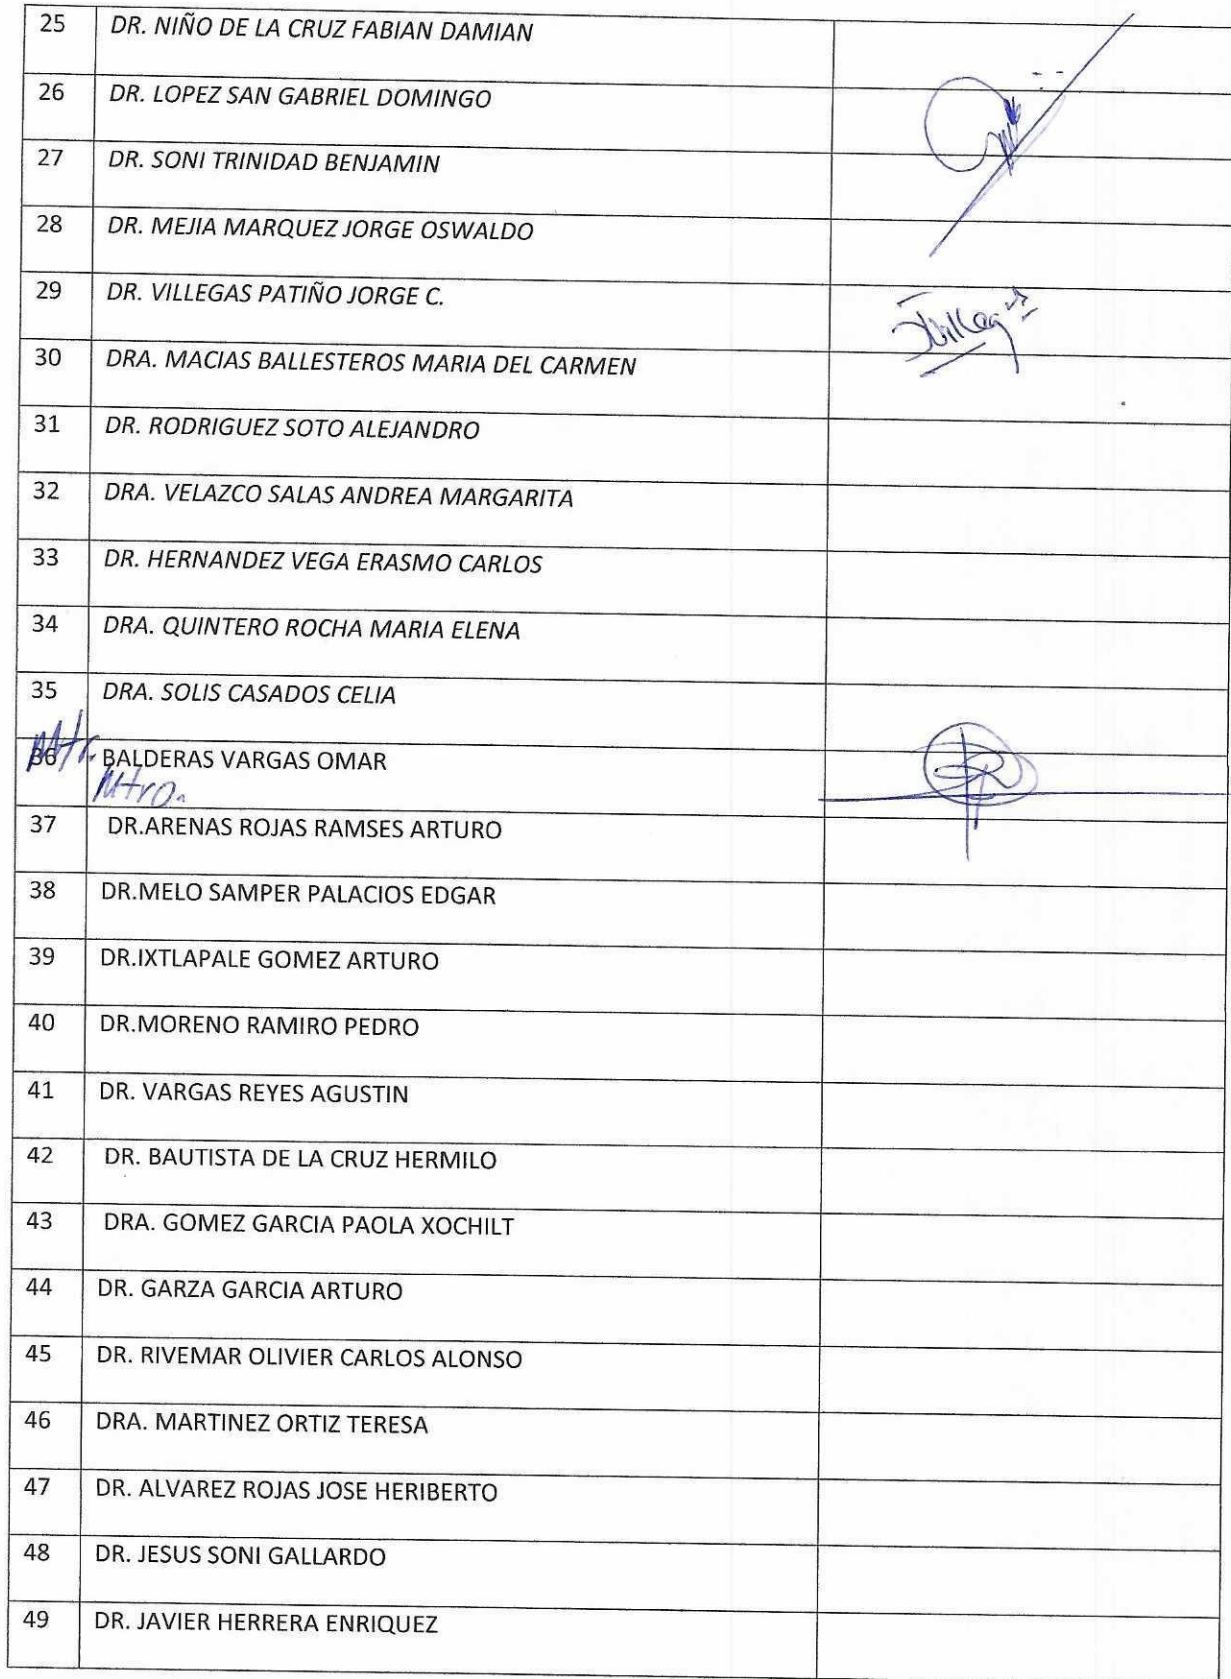 25 DR. NIÑO DE LA CRUZ FABIAN DAMIAN
26 DR. LOPEZ SAN GABRIEL DOMINGO
27 DR. SONI TRINIDAD BENJAMIN
28 DR. MEJIA MARQUEZ JORGE OSWALDO
29 DR. VILLEGAS PATIÑO JORGE C.
30 DRA. MACIAS BALLESTEROS MARIA DEL CARMEN
31 DR. RODRIGUEZ SOTO ALEJANDRO
32 DRA. VELAZCO SALAS ANDREA MARGARITA
33 DR. HERNANDEZ VEGA ERASMO CARLOS
34 DRA. QUINTERO ROCHA MARIA ELENA
35 DRA. SOLIS CASADOS CELIA
36 Mtr. BALDERAS VARGAS OMAR
Mtro.
37 DR.ARENAS ROJAS RAMSES ARTURO
38 DR.MELO SAMPER PALACIOS EDGAR
39 DR.IXTLAPALE GOMEZ ARTURO
40 DR.MORENO RAMIRO PEDRO
41 DR. VARGAS REYES AGUSTIN
42 DR. BAUTISTA DE LA CRUZ HERMILO
43 DRA. GOMEZ GARCIA PAOLA XOCHILT
44 DR. GARZA GARCIA ARTURO
45 DR. RIVEMAR OLIVIER CARLOS ALONSO
46 DRA. MARTINEZ ORTIZ TERESA
47 DR. ALVAREZ ROJAS JOSE HERIBERTO
48 DR. JESUS SONI GALLARDO
49 DR. JAVIER HERRERA ENRIQUEZ